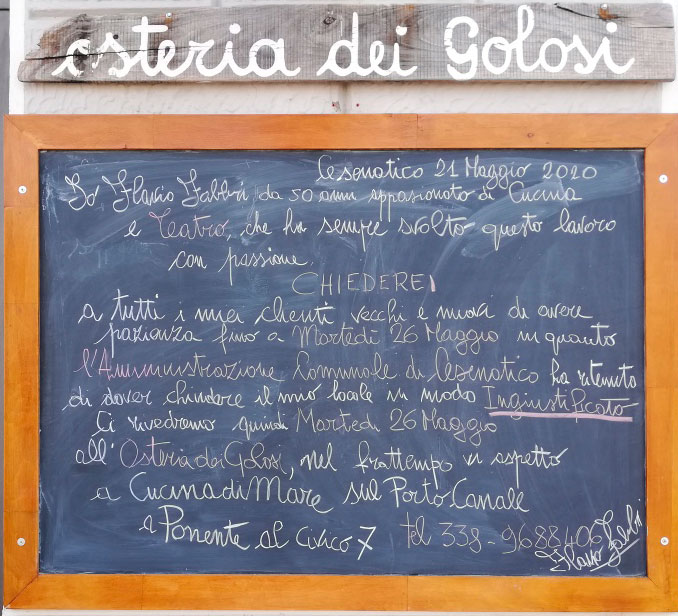 osteria dei Golosi
Cesenatico 21 Maggio 2020
Io Flavio Fabbri, da 50 anni appasionato di Cucina
e Teatro, che ha sempre svolto questo lavoro
con passione
CHIEDEREI
a tutti i miei clienti vecchi e nuovi di avere
pazianza fino a Martedi 26 Maggio in quanto
l'Amministrazione Comunale di Cesenatico ha ritenuto
di dover chiudere il mio locale in modo Ingiustificato
Ci rivedremo quindi Martedi 26 Maggio
all'Osteria dei Golosi, nel frattempo vi aspetto
a Cucina di Mare sul Porto Canale
a Ponente al civico 7 tel 338-9688406
Flavio Fabbri